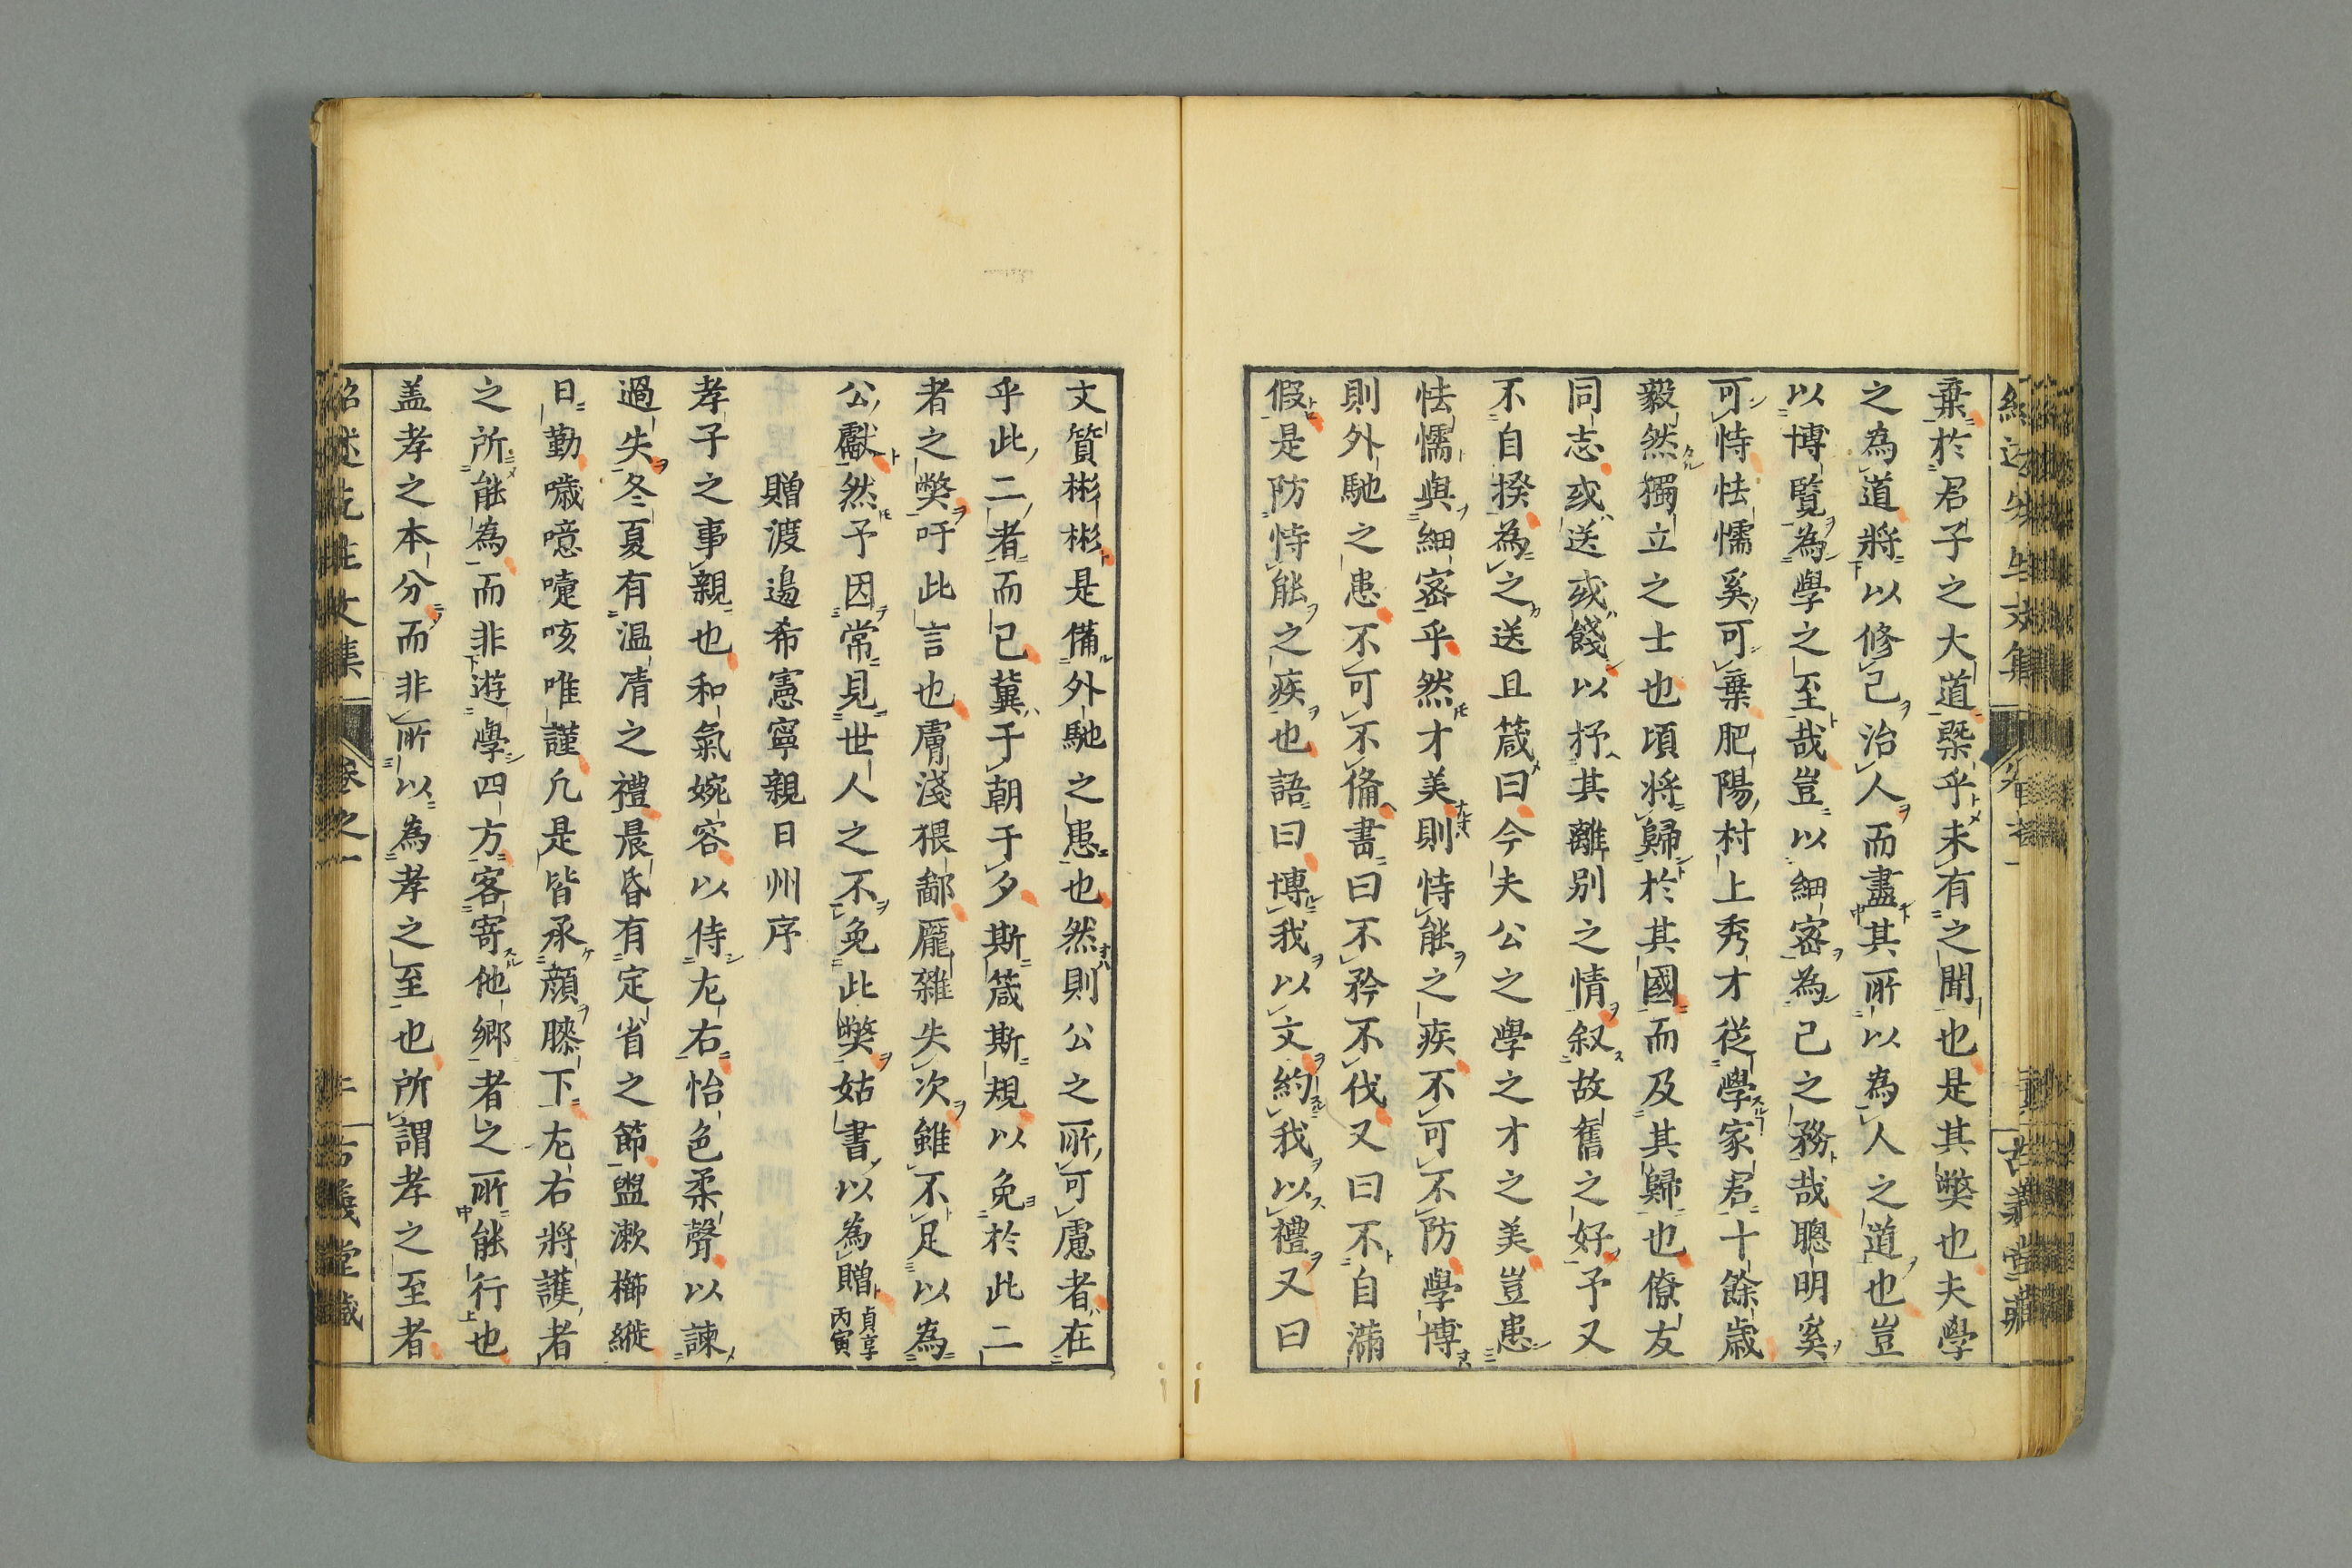 棄於君子之大道槩乎未有之聞也是其獘也夫學
之為道將以修己治人而盡其所以為人之道也豈
以博覽為學之至哉豈以細密為己之務哉聰明奚
可恃怯懦奚可棄肥陽村上秀才從學家君十餘歲
毅然獨立之士也頃將歸於其國而及其歸也僚友
同志或送或餞以抒其離別之情叙故舊之好予又
不自揆為之送且箴曰今夫公之學之才之美豈患
怯懦與細密乎然才美則恃能之疾不可不防學博
則外馳之患不可不備書曰不矜不伐又曰不自滿
假是防恃能之疾也語曰博我以文約我以禮又曰
文質彬彬是備外馳之患也然則公之所可慮者在
乎此二者而已冀于朝于夕斯箴斯規以免於此二
者之獘吁此言也膚淺猥鄙厖雜失次雖不足以為
公獻然予因常見世人之不免此獘姑書以為贈貞享丙寅
贈渡邉希憲寧親日州序
孝子之事親也和氣婉容以侍左右怡色柔聲以諫
過失冬夏有温凊之禮晨昏有定省之節盥漱櫛縰
日勤噦噫嚏咳唯謹凢是皆承顔膝下左右將護者
之所能為而非遊學四方客寄他鄉者之所能行也
盖孝之本分而非所以為孝之至也所謂孝之至者
紹述先生文集 卷之一 古義堂藏